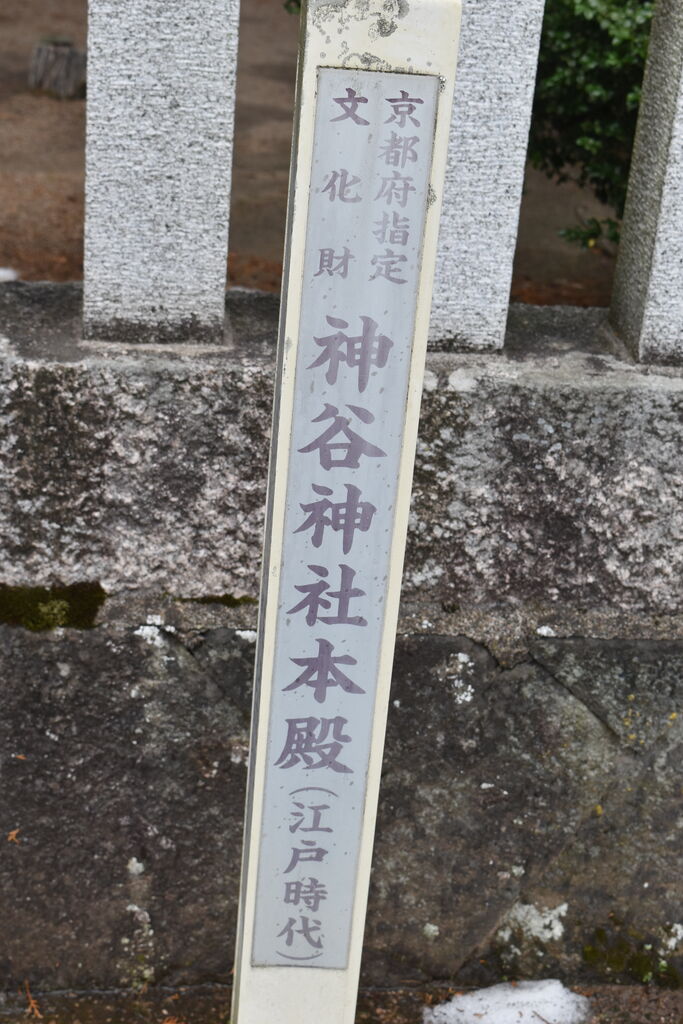 京都府指定
文化財
神谷神社本殿(江戸時代)